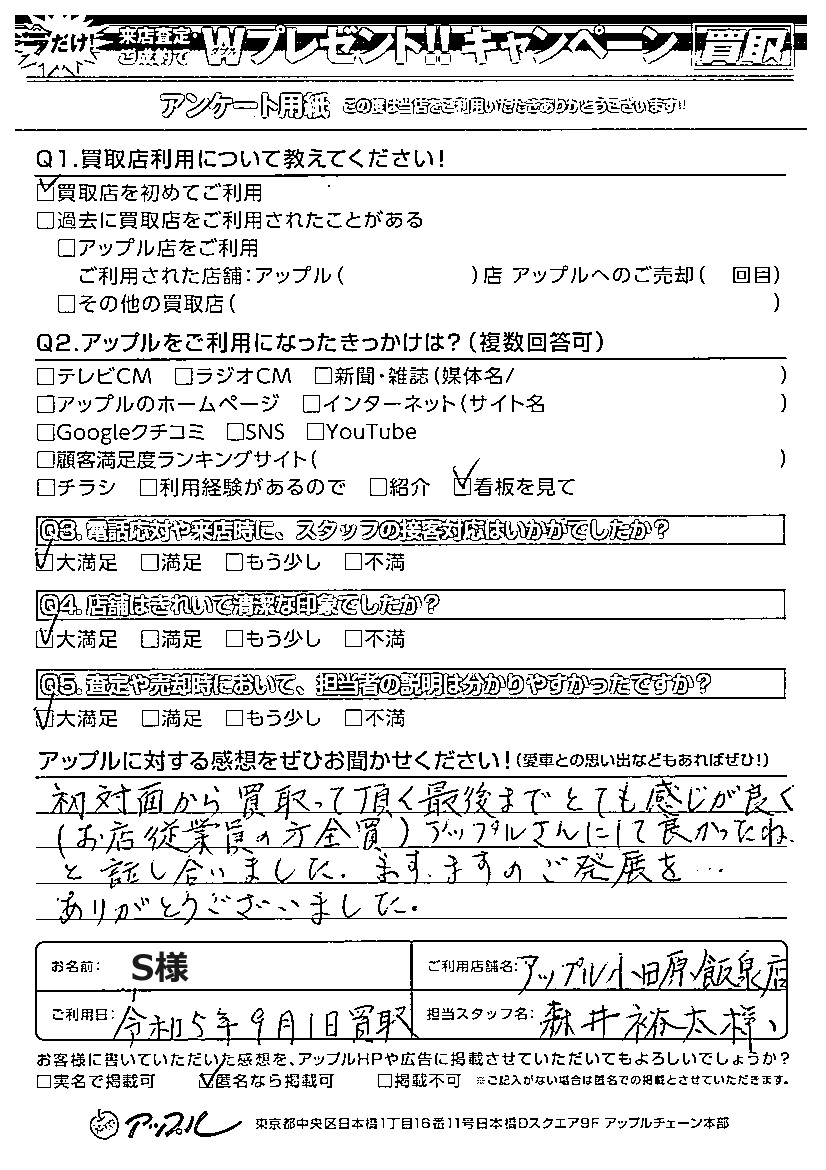 今だけ! 来店査定・ご成約で Wプレゼント!! キャンペーン 買取
アンケート用紙 この度は当店をご利用いただきありがとうございます!!
Q1.買取店利用について教えてください!
☑買取店を初めてご利用
□過去に買取店をご利用されたことがある
□アップル店をご利用
ご利用された店舗:アップル( )店 アップルへのご売却( 回目)
□その他の買取店( )
Q2.アップルをご利用になったきっかけは?(複数回答可)
□テレビCM □ラジオCM □新聞・雑誌(媒体名/ )
□アップルのホームページ □インターネット(サイト名 )
□Googleクチコミ □SNS □YouTube
□顧客満足度ランキングサイト( )
□チラシ □利用経験があるので □紹介 ☑看板を見て
Q3.電話応対や来店時に、スタッフの接客対応はいかがでしたか?
☑大満足 □満足 □もう少し □不満
Q4.店舗はきれいで清潔な印象でしたか?
☑大満足 □満足 □もう少し □不満
Q5.査定や売却時において、担当者の説明は分かりやすかったですか?
☑大満足 □満足 □もう少し □不満
アップルに対する感想をぜひお聞かせください!(愛車との思い出などもあればぜひ!)
初対面から買取って頂く最後までとても感じが良く
(お店従業員の方全員)アップルさんにして良かったね、
と話し合いました。ますますのご発展を…
ありがとうございました。
お名前: S様 ご利用店舗名:アップル小田原飯泉店
ご利用日: 令和5年9月1日買取 担当スタッフ名: 森井裕太様、
お客様に書いていただいた感想を、アップルHPや広告に掲載させていただいてもよろしいでしょうか?
□実名で掲載可 ☑匿名なら掲載可 □掲載不可 ※ご記入がない場合は匿名での掲載とさせていただきます。
アップル 東京都中央区日本橋1丁目16番11号日本橋Dスクエア9F アップルチェーン本部